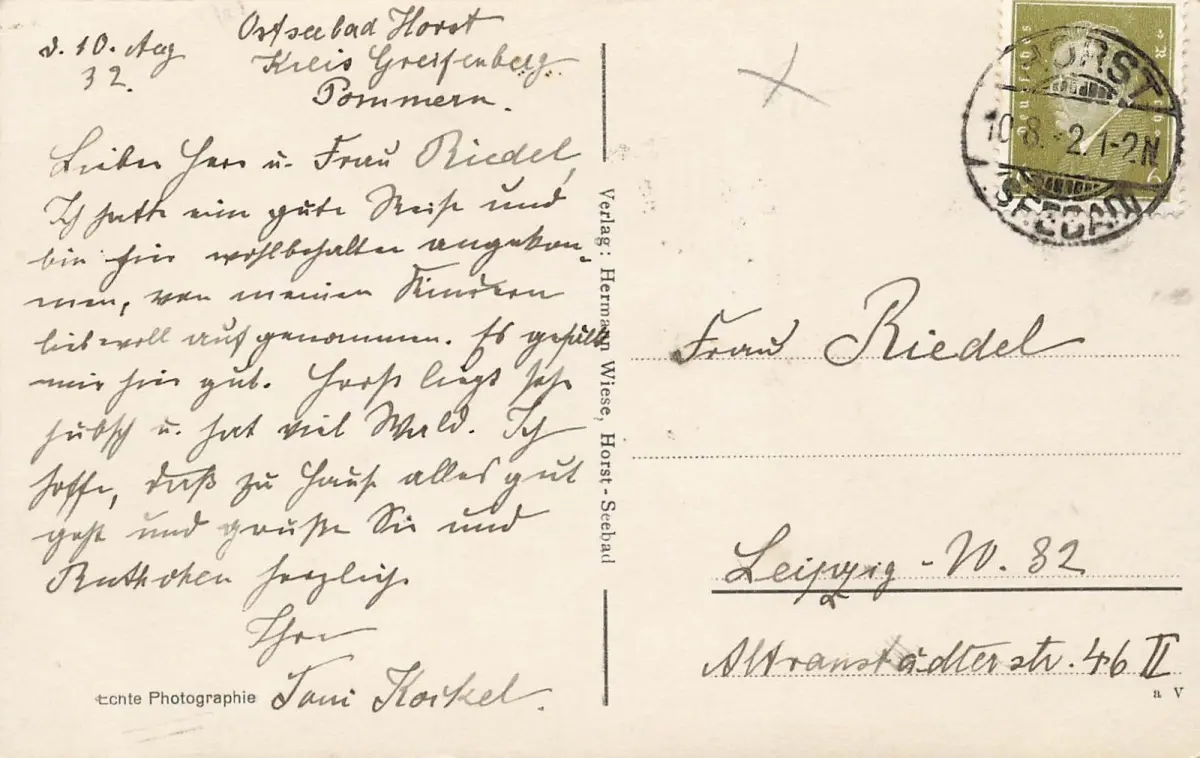 d. 10. Aug
32.
Ostseebad Horst
Kreis Greifenberg
Pommern.
Lieber Herr u. Frau Riedel,
Ich hatte eine gute Reise und
bin hier wohlbehalten angekom-
men, von meinen Kindern
liebevoll aufgenommen. Es gefällt
mir hier gut. Horst liegt sehr
hübsch u. hat viel Wald. Ich
hoffe, daß zu Hause alles gut
geht und grüße Sie und
Ruthchen herzlich.
Ihre
Toni
Echte Photographie
Verlag: Hermann Wiese, Horst-Seebad
Deutsches Reich
HORST
10.8.32.1-2N
SEEBAD
Frau Riedel
Leipzig - W. 32
Altranstädterstr. 46 II
a V